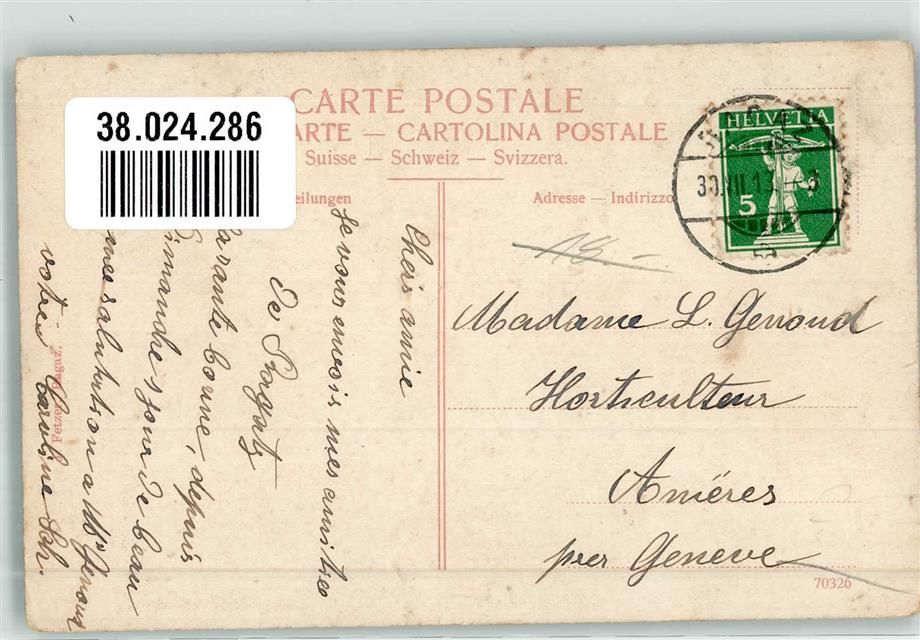 38.024.286
CARTE POSTALE
ARTE — CARTOLINA POSTALE
Suisse — Schweiz — Svizzera.
eilungen
Adresse — Indirizzo
HELVETIA
5
30.VII.13
Cheis amie
Je vous envois mes amitiee
De Ragatz
arante bonne, depuis
imanche jour de beau
mes salutation a Mr Genoud
votre Caroline Sch.
Madame L. Genoud
Horticulteur
Aniéres
prer Geneve
Fetzer, Ragaz.
70326